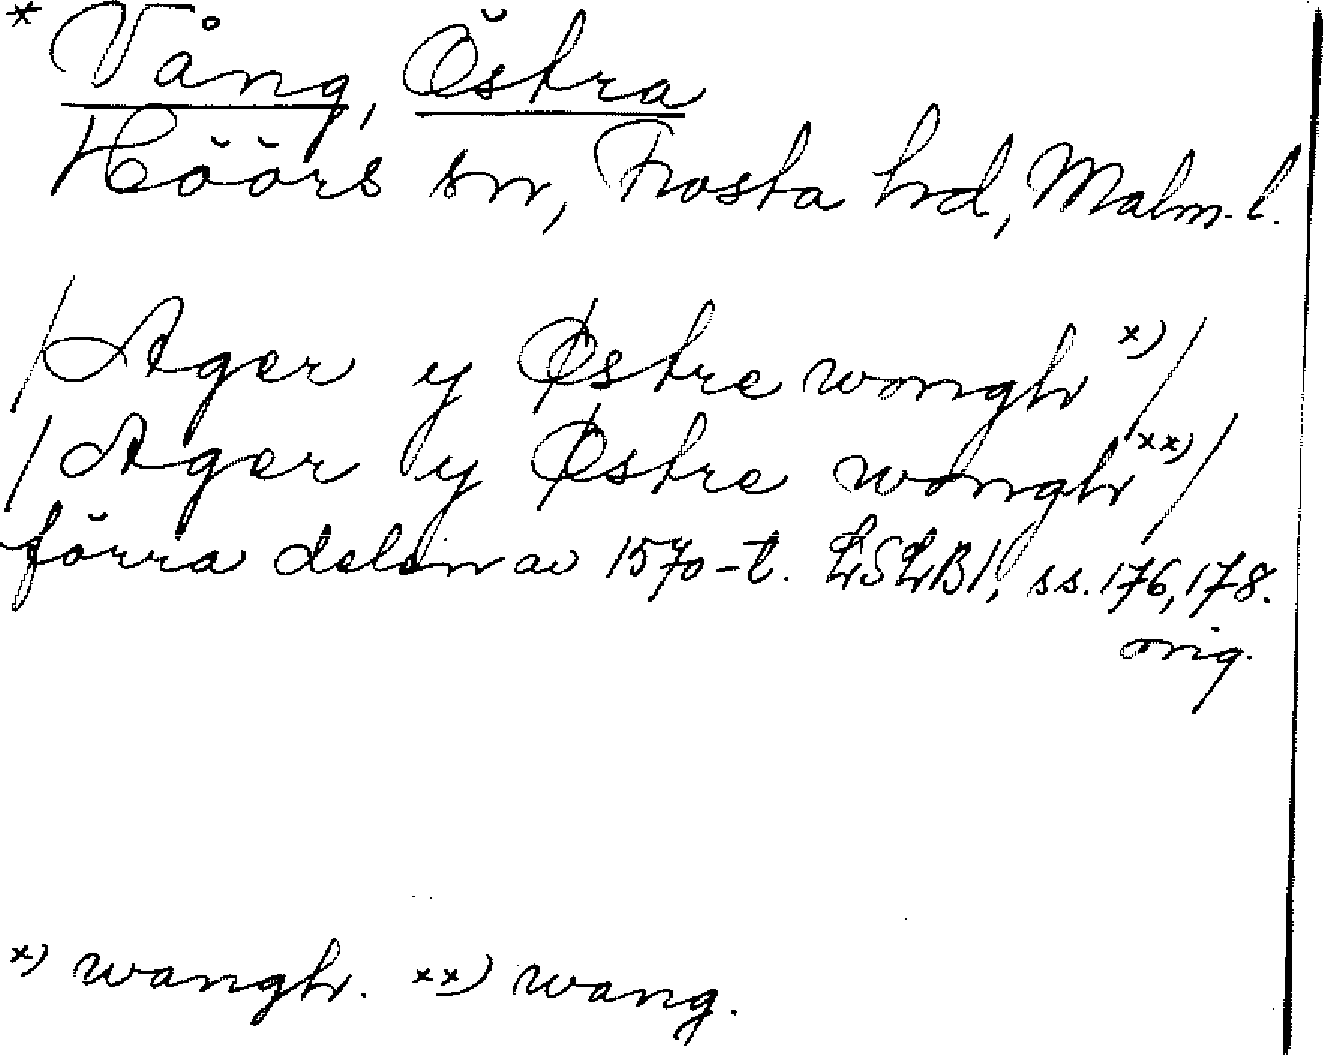 * Vång, Östra
Höörs sn, Frosta hrd, Malm. l.
/Ager y Østre wongh x)/
/Ager y Østre wongh xx)/
förra delen av 1570-t. LSLB1, ss. 176, 178.
orig.
x) wangh. xx) wang.